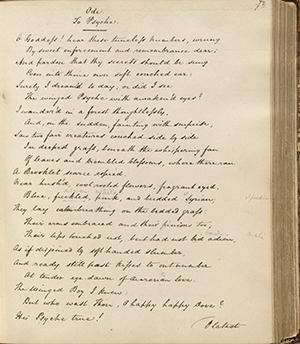 Ode
To Psyche.
O Goddess! hear these tuneless numbers, wrung
By sweet enforcement and remembrance dear;
And pardon that thy secrets should be sung
Even into thine own soft couched ear.
Surely I dream'd to day, or did I see
The winged Psyche with awaken'd eyes?
I wander'd in a forest thoughtlessly,
And, on the sudden, fainting with surprise
Saw two fair creatures couched side by side
In deepest grass, beneath the whispering fan
Of leaves and trembled blossoms, where there ran
A Brooklet scarce espied
Near hush'd, cool rooted flowers, fragrant eyed,
Blue, freckled, pink, and budded Syrian,
They lay calm breathing on the bedded grass
Their arms embraced and their pinions too;
Their lips touched not, but had not bid adieu,
As if disjoined by soft handed slumber,
And ready still past kisses to outnumber
At tender eye dawn of aurorian love.
The Winged Boy I knew
But who wast Thou, O happy happy Dove?
His Psyche true!
O latest